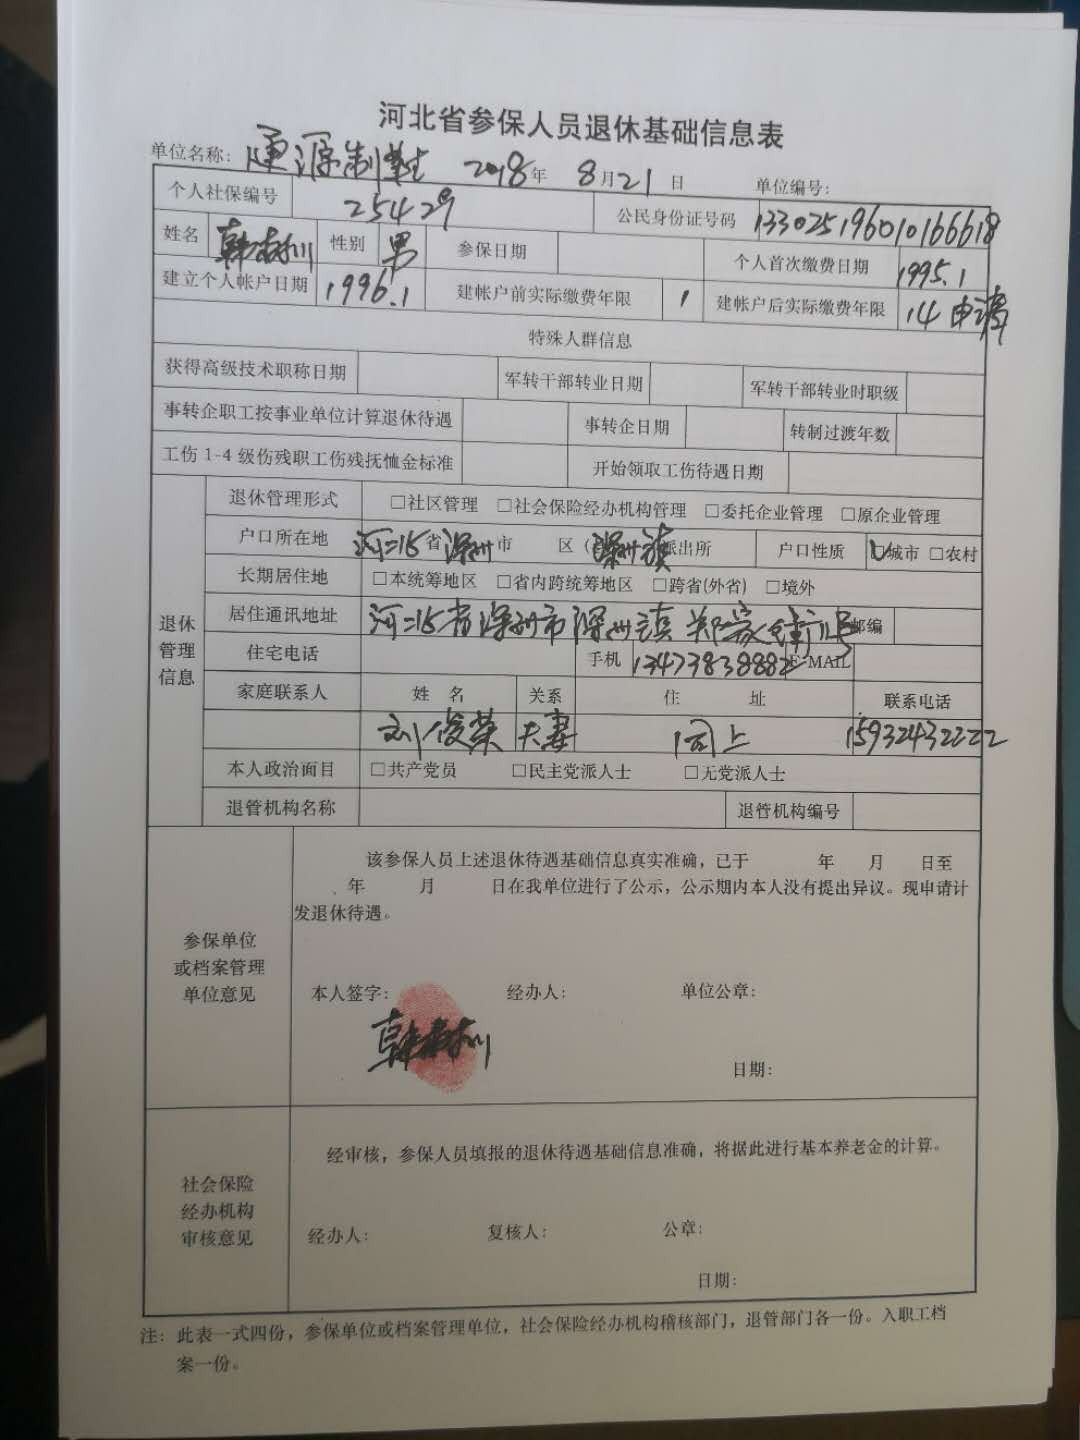 河北省参保人员退休基础信息表
单位名称： 2018年 8月21日 单位编号：
个人社保编号 25429 公民身份证号码 133025196010166618
姓名 韩 性别 男 参保日期 个人首次缴费日期 1995.1
建立个人帐户日期 1996.1 建帐户前实际缴费年限 1 建帐户后实际缴费年限 14 申请
特殊人群信息
获得高级技术职称日期 军转干部转业日期 军转干部转业时职级
事转企职工按事业单位计算退休待遇 事转企日期 转制过渡年数
工伤1-4级伤残职工伤残抚恤金标准 开始领取工伤待遇日期
退休管理信息
退休管理形式 □社区管理 □社会保险经办机构管理 □委托企业管理 □原企业管理
户口所在地 河北省 深州市 区（ 深州镇 派出所 户口性质 □城市 □农村
长期居住地 □本统筹地区 □省内跨统筹地区 □跨省(外省) □境外
居住通讯地址 河北省深州市深州镇郑家 邮编
住宅电话 手机 13473838882 E-MAIL
家庭联系人 姓 名 关系 住 址 联系电话
刘俊荣 夫妻 同上 15932432222
本人政治面目 □共产党员 □民主党派人士 □无党派人士
退管机构名称 退管机构编号
参保单位或档案管理单位意见
该参保人员上述退休待遇基础信息真实准确，已于 年 月 日至
年 月 日在我单位进行了公示，公示期内本人没有提出异议。现申请计
发退休待遇。
本人签字： 经办人： 单位公章：
韩
日期：
社会保险经办机构审核意见
经审核，参保人员填报的退休待遇基础信息准确，将据此进行基本养老金的计算。
经办人： 复核人： 公章：
日期：
注：此表一式四份，参保单位或档案管理单位，社会保险经办机构稽核部门，退管部门各一份。入职工档
案一份。